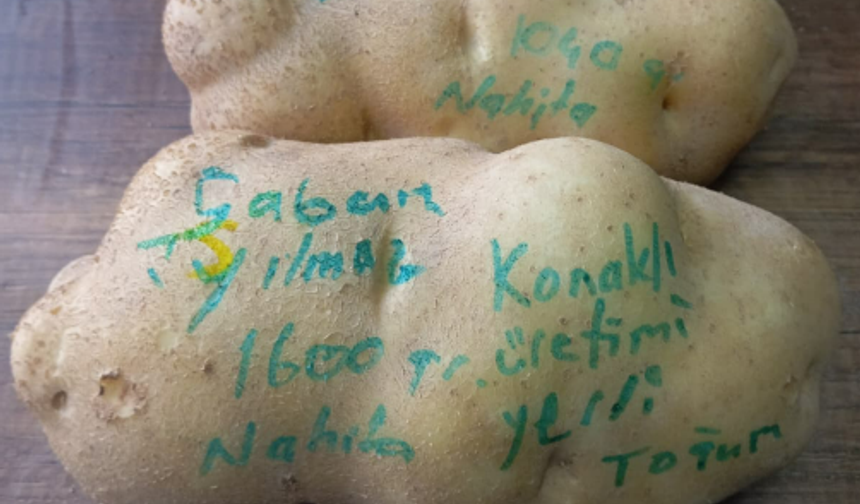 1040 g
Nahita
Şaban
Yılmaz
1600 gr.
Nahita
Konaklı
üretimi
yerli
Tohum